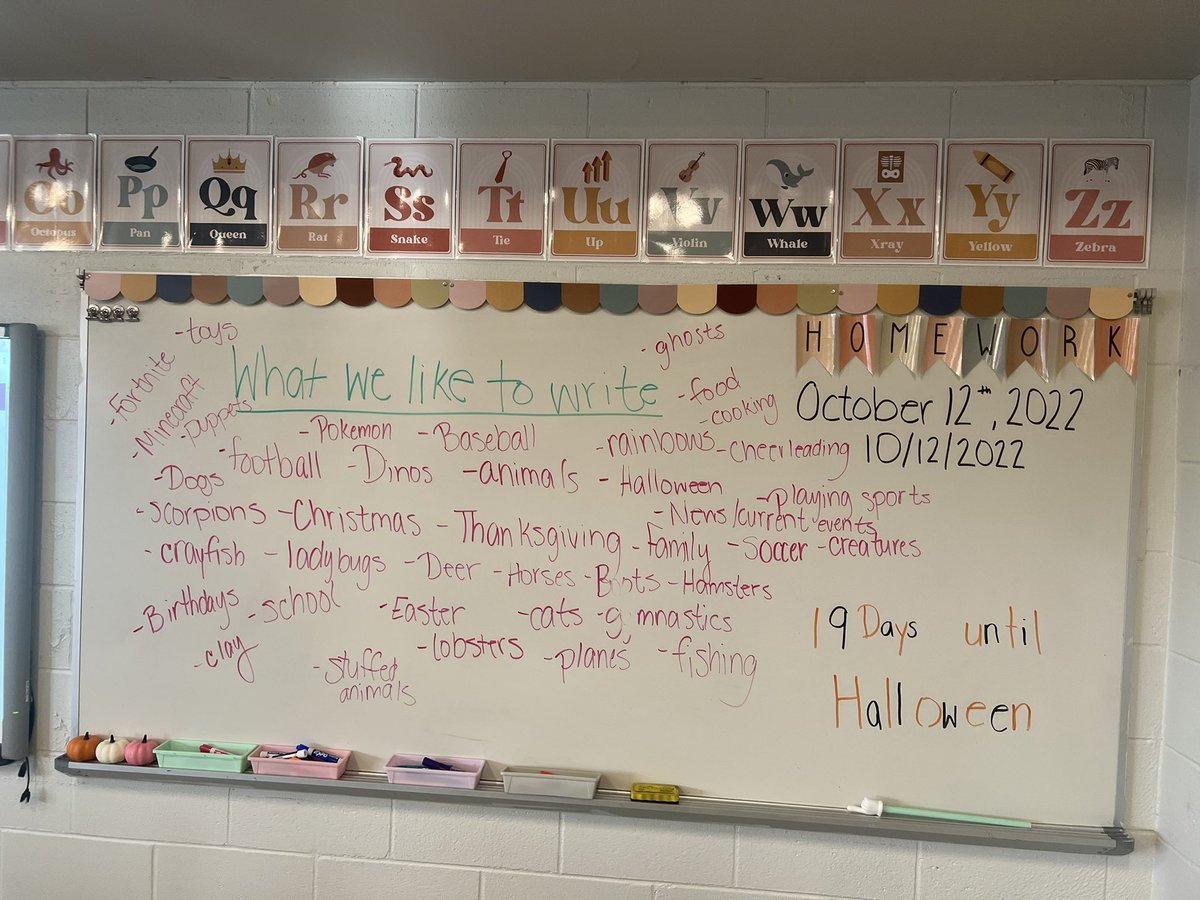 Oo Pp Qq Rr Ss Tt Uu Vv Ww Xx Yy Zz
Octopus Pan Queen Rat Snake Tie Up Violin Whale Xray Yellow Zebra
HOMEWORK
October 12th, 2022
10/12/2022
19 Days until
Halloween
What we like to write
-toys
-ghosts
-Fortnite
-Minecraft
-puppets
-food
-cooking
-Pokemon -Baseball -rainbows -cheerleading
-football -Dinos -animals -Halloween
-Dogs
-playing sports
-scorpions -Christmas -Thanksgiving -News/current events
-family -soccer -creatures
-crayfish -ladybugs -Deer -Horses -Hamsters
-Birthdays -school -Easter -cats -gymnastics
-clay -stuffed animals -lobsters -planes -fishing